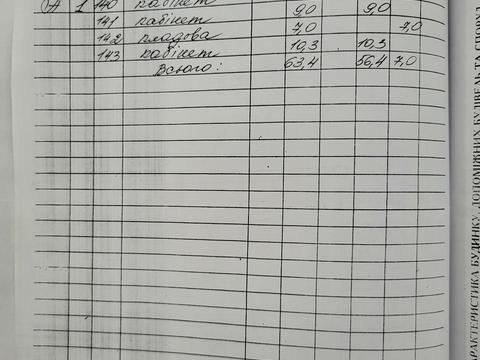 А 1 140 кабінет
141 кабінет 9,0 9,0
142 кладова 7,0 7,0
143 кабінет 10,3 10,3
Всього: 63,4 56,4 7,0
АРАКТЕРИСТИКА БУДИНКУ, ДОПОМІЖНИХ БУДІВЕЛЬ ТА СПОРУД